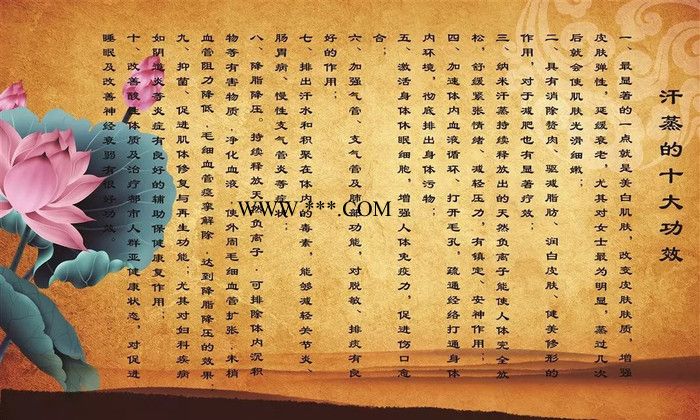 汗蒸的十大功效
一、最显著的一点就是美白肌肤，改变皮肤肤质，增强
皮肤弹性，延缓衰老，尤其对女士最为明显，蒸过几次
后就会使肌肤光滑细嫩；
二、具有消除赘肉、驱减脂肪、润白皮肤、健美修形的
作用，对于减肥也有显著疗效；
三、纳米汗蒸持续释放出的天然负离子能使人体完全放
松，舒缓紧张情绪、减轻压力，有镇定、安神作用；
四、加速体内血液循环、打开毛孔，疏通经络打通身体
内环境，彻底排出身体污物；
五、激活身体休眠细胞，增强人体免疫力，促进伤口愈
合；
六、加强气管、支气管及肺部功能，对脱敏、排痰有良
好的作用；
七、排出汗水和积聚在体内的毒素，能够减轻关节炎、
肠胃病、慢性支气管炎等症状；
八、降脂降压。持续释放天然负离子，可排除体内沉积
物等有害物质，净化血液，使外周毛细血管扩张，末梢
血管阻力降低，毛细血管痉挛解除，达到降脂降压的效果；
九、抑菌、促进肌体修复与再生功能；尤其对妇科疾病
如阴道炎等炎症有良好的辅助保健康复作用；
十、改善酸性体质及治疗都市人群亚健康状态，对促进
睡眠及改善神经衰弱有很好功效。
WWW.***.COM